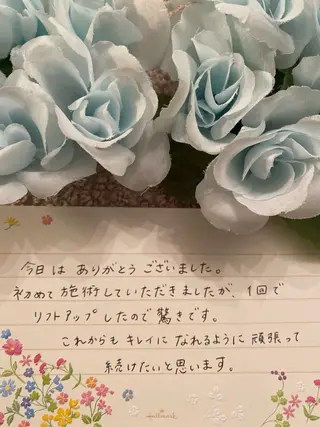 今日は ありがとう ございました。
初めて 施術していただきましたが、1回で
リフトアップ したので 驚きです。
これからも キレイに なれるように 頑張って
続けたいと思います。
Hallmark